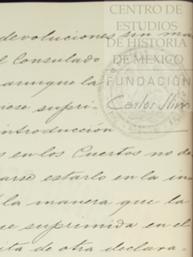 CENTRO DE
ESTUDIOS
DE HISTORIA
DE MÉXICO
FUNDACIÓN
Carlos Slim
devoluciones sin ma
el Consulado
aunque la
supri-
introduccion
en los Puertos no de
arse estarlo en la in
la manera que la
ce suprimida en el
ta de otra declara-